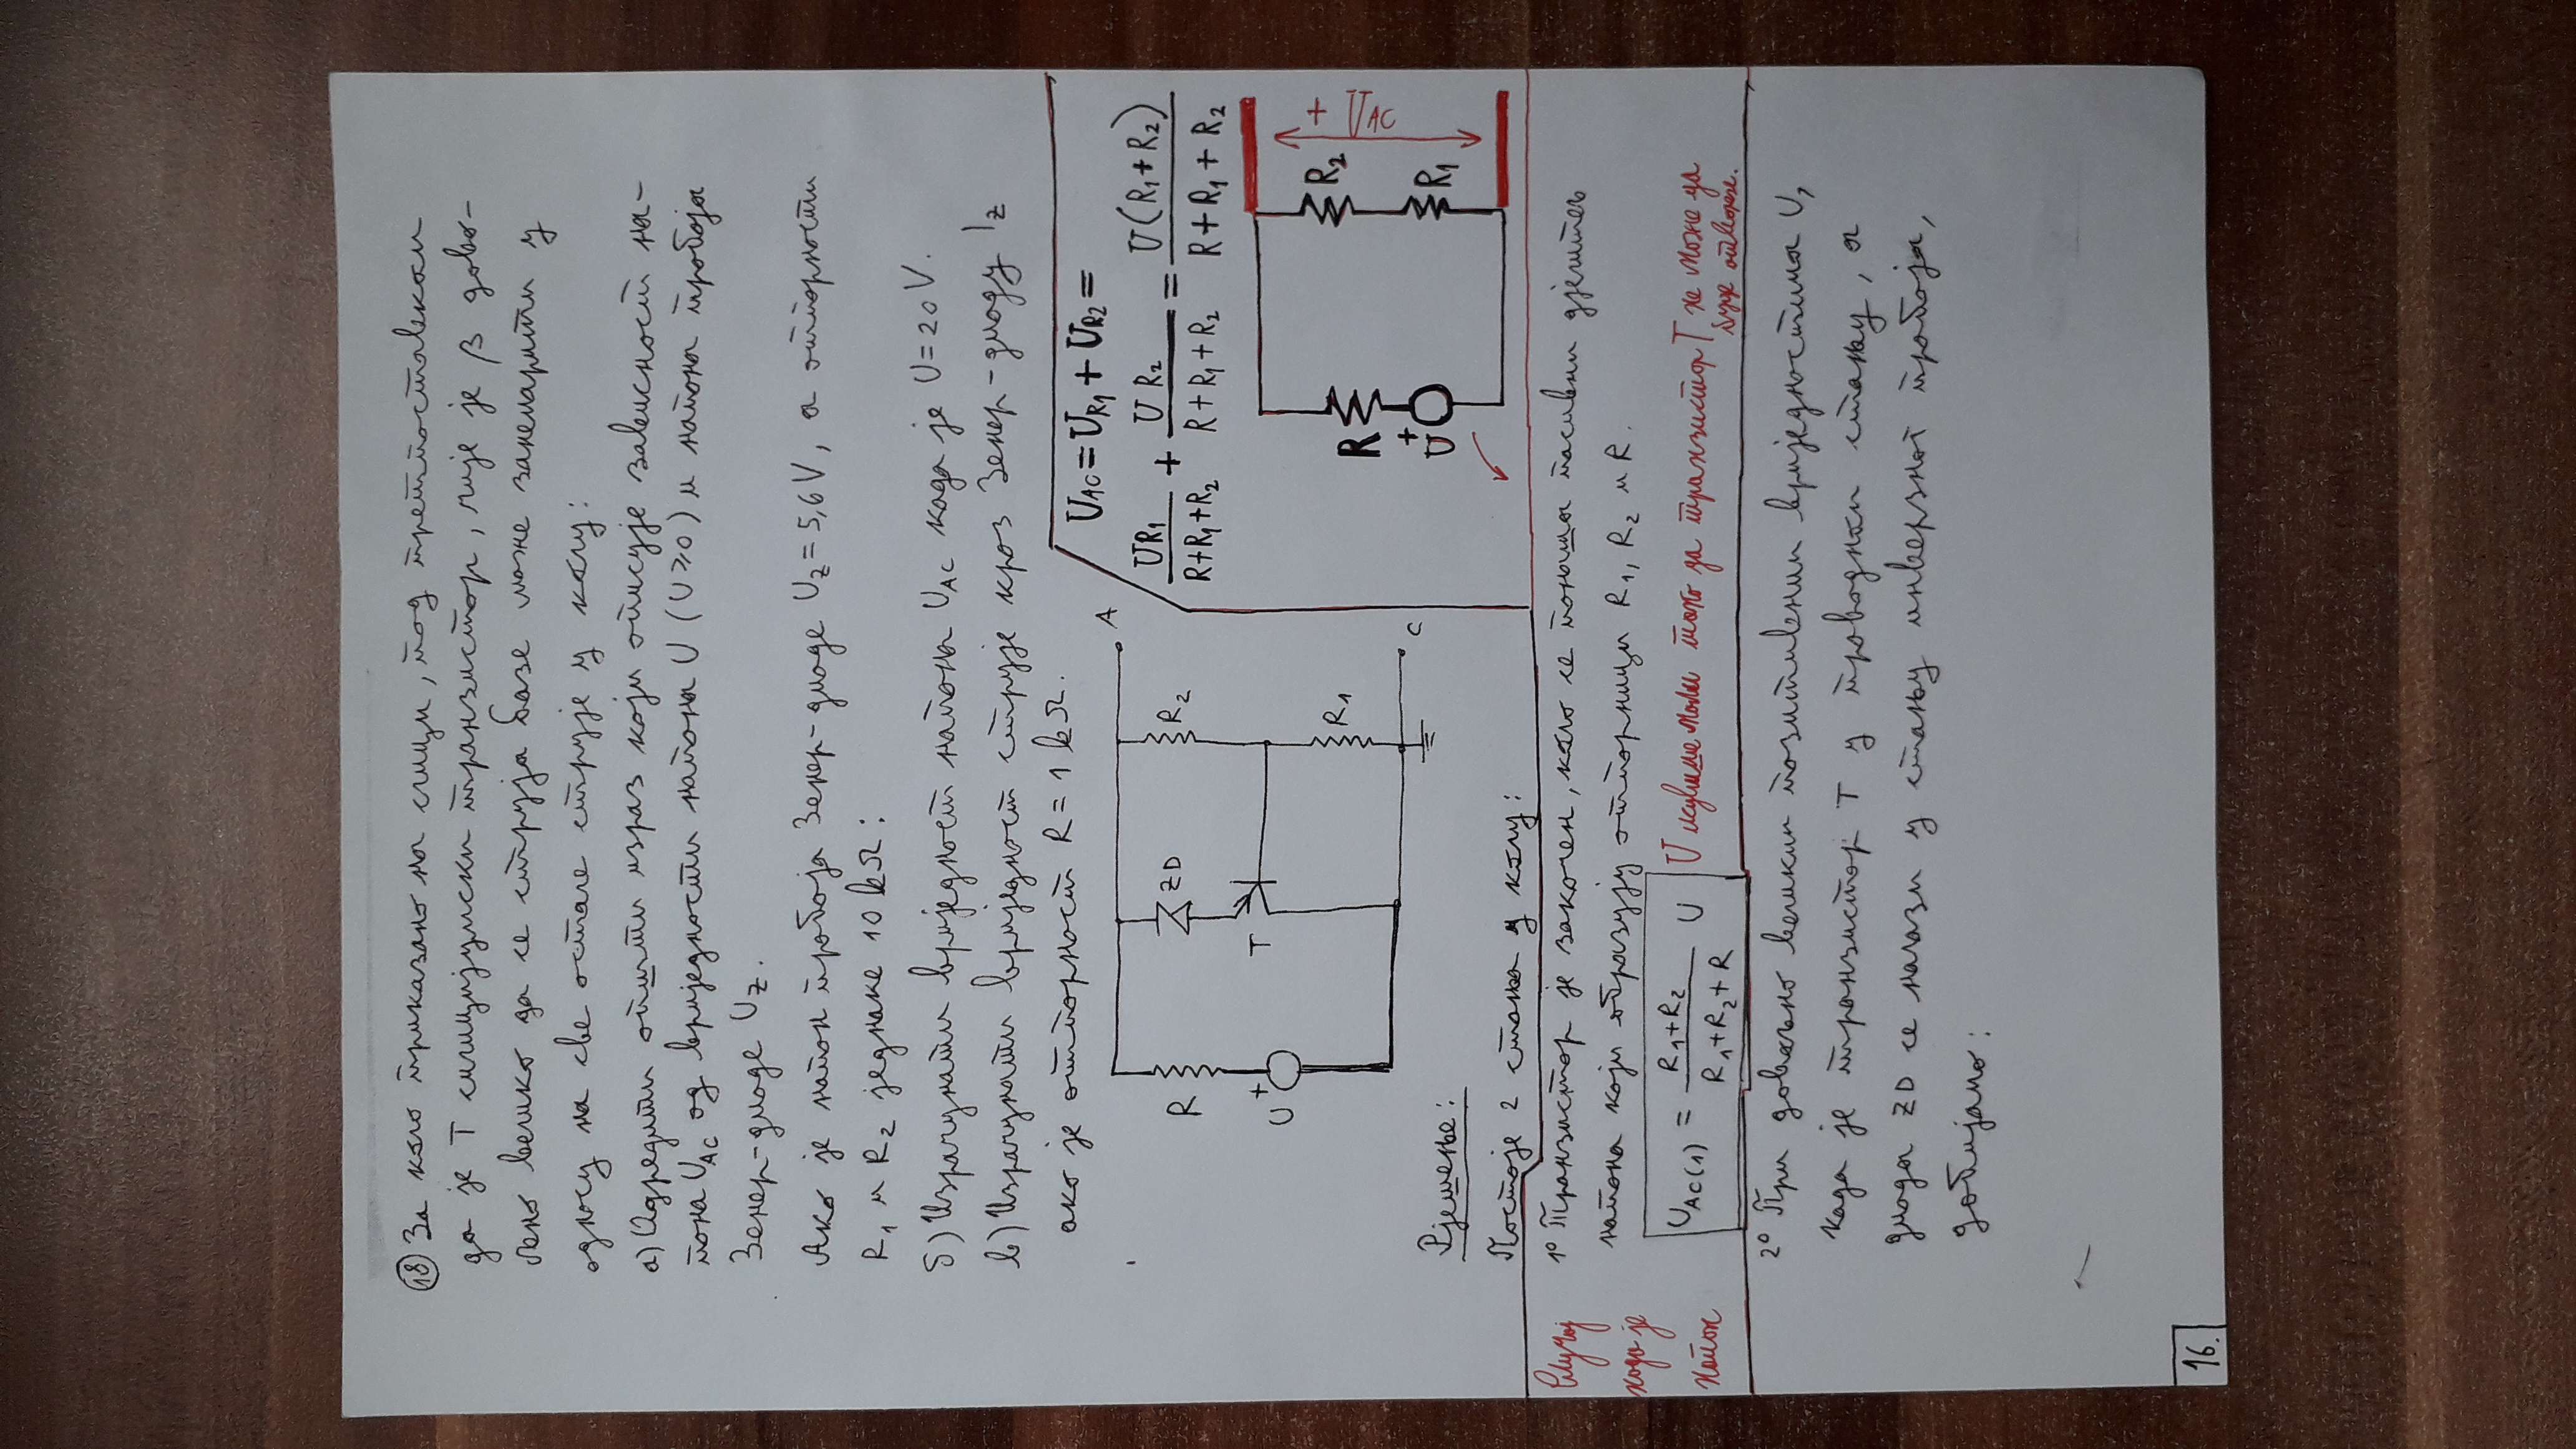 18 За коло приказано на слици, под претпоставком
да је T силицијумски транзистор, чије је β дово-
љно велико да се струја базе може занемарити у
односу на све остале струје у колу:
а) Одредити општи израз који описује зависност на-
пона U_AC од вриједности напона U (U ≥ 0) и напона пробоја
Зенер-диоде U_Z.
Ако је напон пробоја Зенер-диоде U_Z = 5,6 V, а отпорности
R_1 и R_2 једнаке 10 kΩ:
б) Израчунати вриједност напона U_AC када је U = 20 V.
в) Израчунати вриједност струје кроз Зенер-диоду I_Z
ако је отпорност R = 1 kΩ.
U_AC = U_R1 + U_R2 =
UR_1/(R+R_1+R_2) + UR_2/(R+R_1+R_2) = U(R_1+R_2)/(R+R_1+R_2)
A
R
ZD
R_2
T
+
U
R_1
C
R
+
U
R_2
R_1
+ U_AC
Рјешење:
Постоје 2 стања у колу:
Случај
када је
напон
1° Транзистор је закочен, коло се понаша пасивни дјелитељ
напона који образују отпорници R_1, R_2 и R.
U_AC(1) = (R_1+R_2)/(R_1+R_2+R) U
U исувише мали тако да транзистор T не може да
буде отворен.
2° При довољно великим позитивним вриједностима U,
када је транзистор T у проводном стању, а
диода ZD се налази у стању инверзног пробоја,
добијамо:
16.